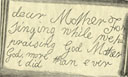 dear Mother I
Singing while we
praising God Mother
God more than ever
i did